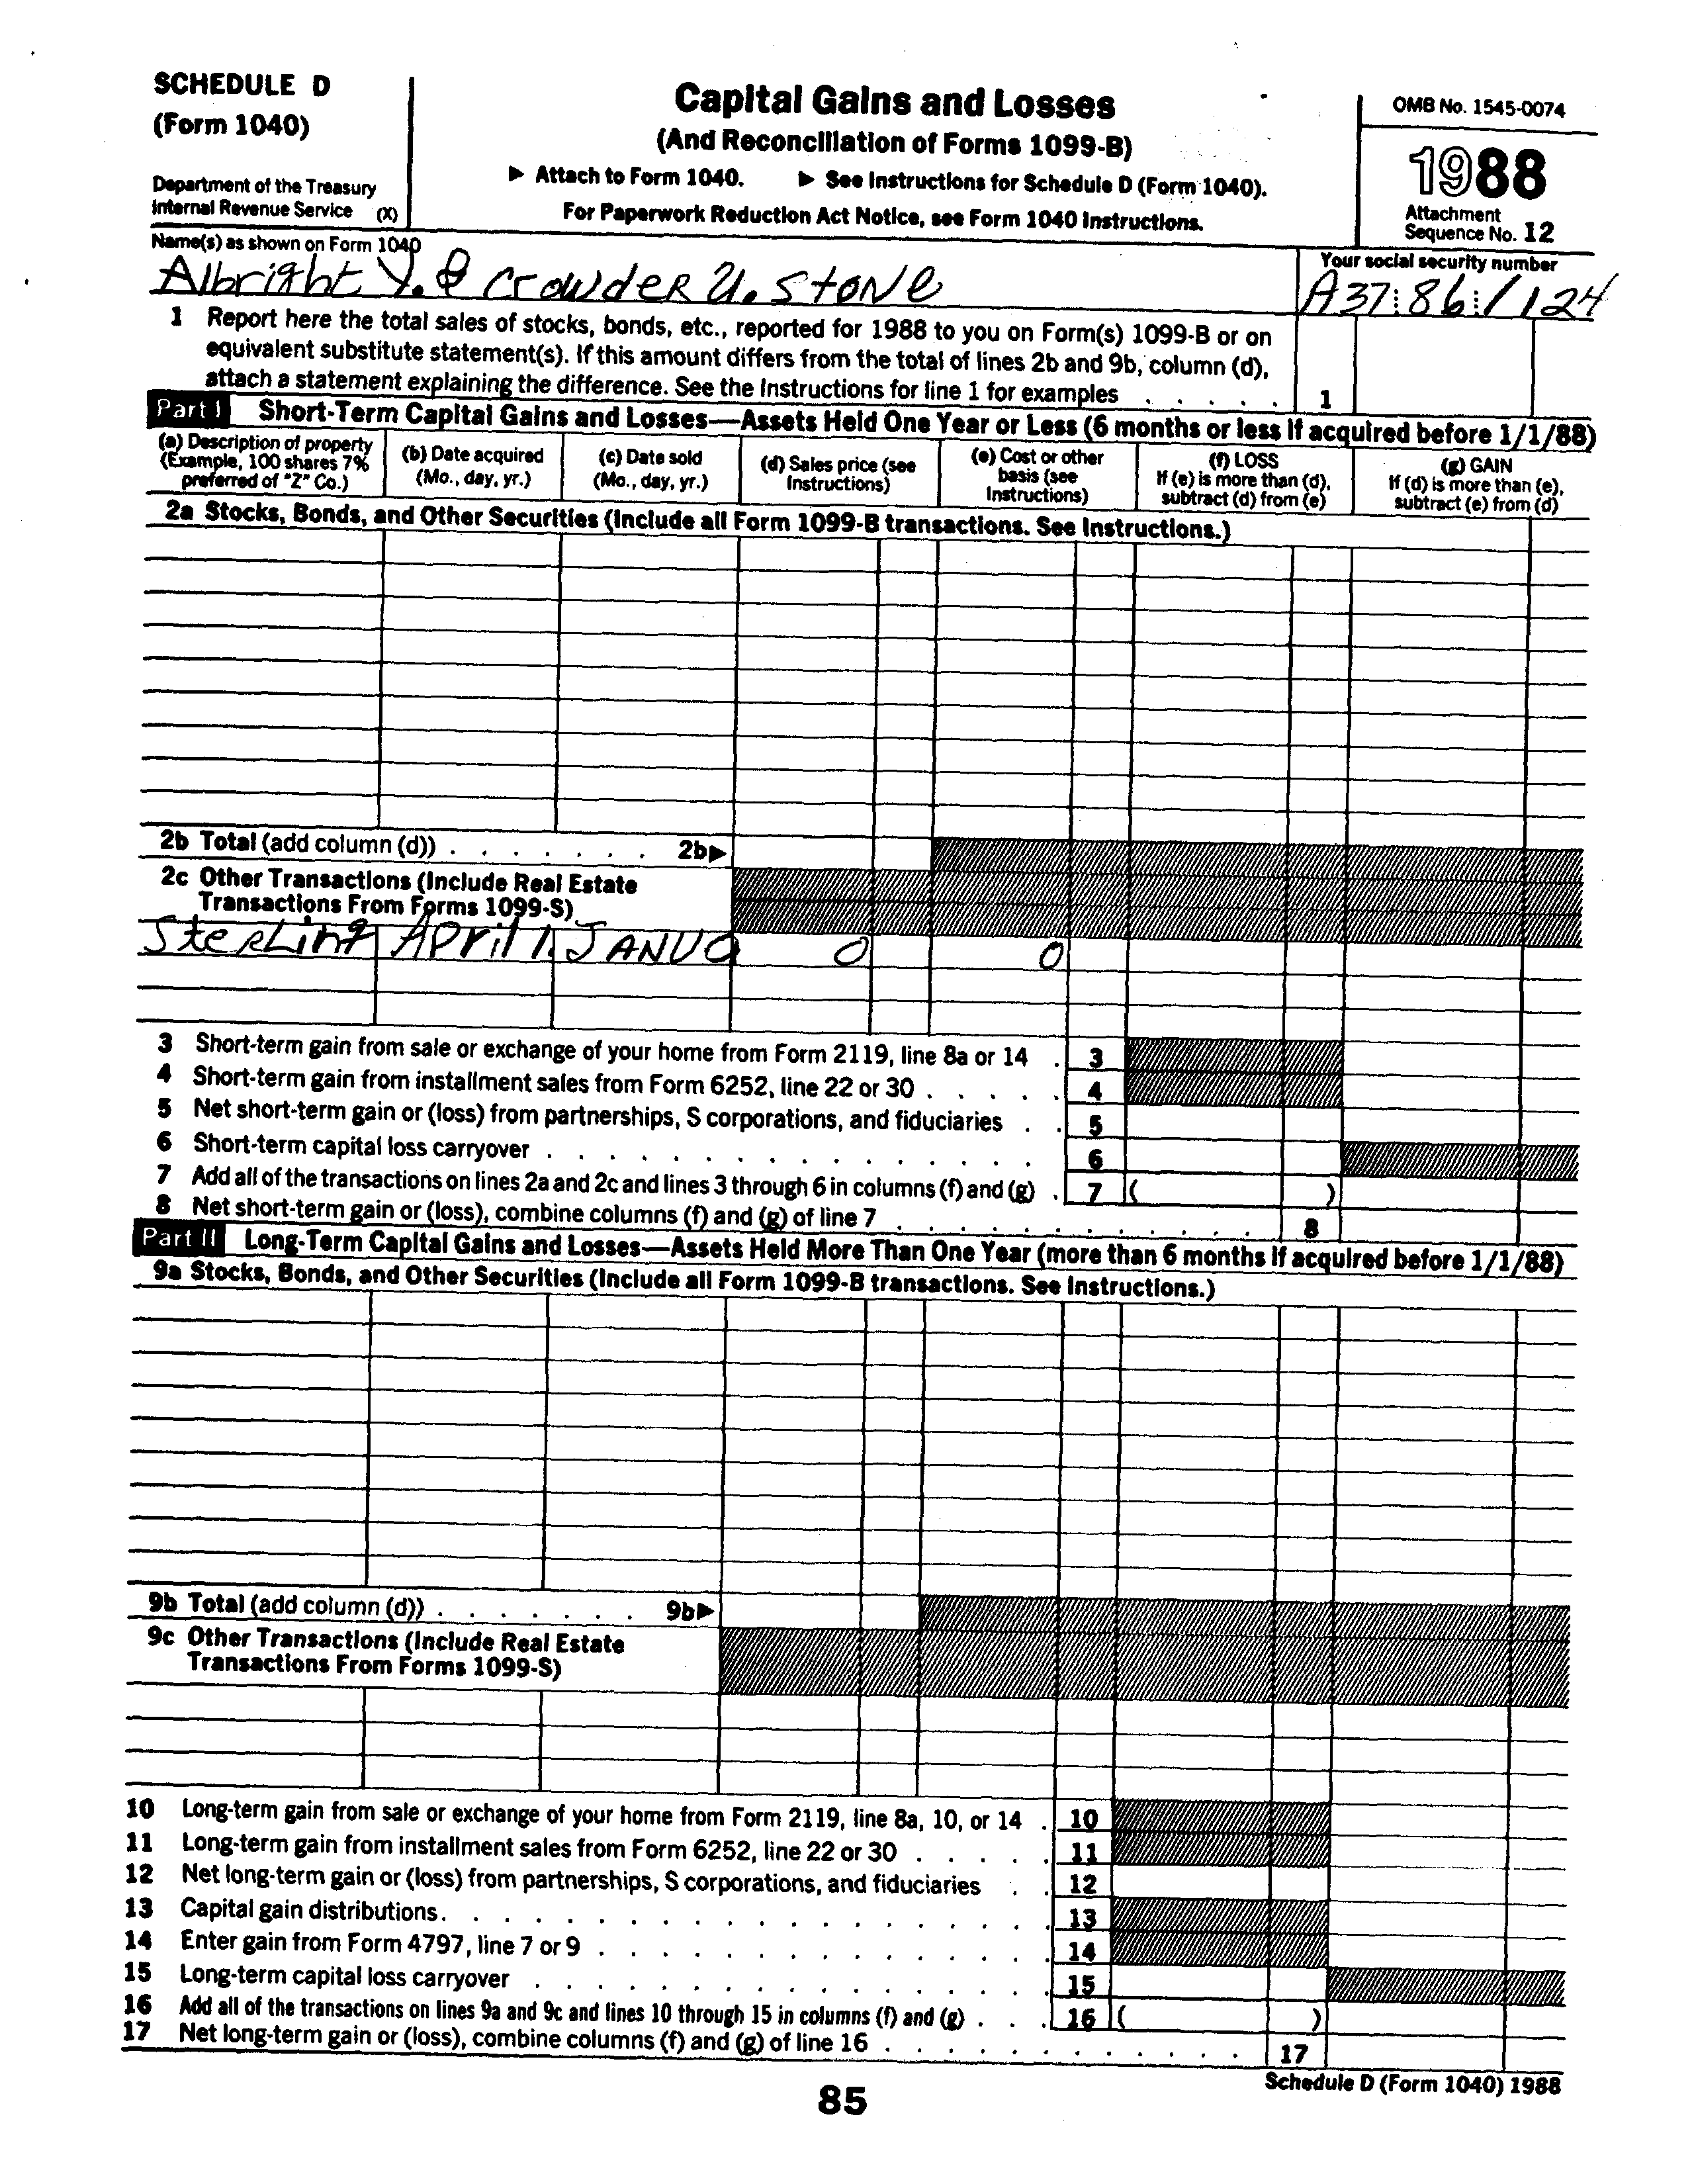 SCHEDULE D
(Form 1040)
Department of the Treasury
Internal Revenue Service (X)
Capital Gains and Losses
(And Reconciliation of Forms 1099-B)
▶ Attach to Form 1040. ▶ See Instructions for Schedule D (Form 1040).
For Paperwork Reduction Act Notice, see Form 1040 Instructions.
OMB No. 1545-0074
1988
Attachment
Sequence No. 12
Name(s) as shown on Form 1040
Albright Y. & Crowder U. Stone
Your social security number
A37 86 1124
1 Report here the total sales of stocks, bonds, etc., reported for 1988 to you on Form(s) 1099-B or on
equivalent substitute statement(s). If this amount differs from the total of lines 2b and 9b, column (d),
attach a statement explaining the difference. See the Instructions for line 1 for examples . . . . . 1
Part I Short-Term Capital Gains and Losses—Assets Held One Year or Less (6 months or less if acquired before 1/1/88)
(a) Description of property
(Example, 100 shares 7%
preferred of "Z" Co.)
(b) Date acquired
(Mo., day, yr.)
(c) Date sold
(Mo., day, yr.)
(d) Sales price (see
Instructions)
(e) Cost or other
basis (see
Instructions)
(f) LOSS
If (e) is more than (d),
subtract (d) from (e)
(g) GAIN
If (d) is more than (e),
subtract (e) from (d)
2a Stocks, Bonds, and Other Securities (Include all Form 1099-B transactions. See Instructions.)
2b Total (add column (d)) . . . . . . . 2b▶
2c Other Transactions (Include Real Estate
Transactions From Forms 1099-S)
Sterling April 1. JANUA 0 0
3 Short-term gain from sale or exchange of your home from Form 2119, line 8a or 14 . 3
4 Short-term gain from installment sales from Form 6252, line 22 or 30 . . . . . 4
5 Net short-term gain or (loss) from partnerships, S corporations, and fiduciaries . . 5
6 Short-term capital loss carryover . . . . . . . . . . . . . . . . 6
7 Add all of the transactions on lines 2a and 2c and lines 3 through 6 in columns (f) and (g) . 7 ( )
8 Net short-term gain or (loss), combine columns (f) and (g) of line 7 . . . . . . . . . . . . 8
Part II Long-Term Capital Gains and Losses—Assets Held More Than One Year (more than 6 months if acquired before 1/1/88)
9a Stocks, Bonds, and Other Securities (Include all Form 1099-B transactions. See Instructions.)
9b Total (add column (d)) . . . . . . . 9b▶
9c Other Transactions (Include Real Estate
Transactions From Forms 1099-S)
10 Long-term gain from sale or exchange of your home from Form 2119, line 8a, 10, or 14 . 10
11 Long-term gain from installment sales from Form 6252, line 22 or 30 . . . . . 11
12 Net long-term gain or (loss) from partnerships, S corporations, and fiduciaries . . 12
13 Capital gain distributions. . . . . . . . . . . . . . . . . . . . 13
14 Enter gain from Form 4797, line 7 or 9 . . . . . . . . . . . . . . 14
15 Long-term capital loss carryover . . . . . . . . . . . . . . . . . 15
16 Add all of the transactions on lines 9a and 9c and lines 10 through 15 in columns (f) and (g) . . . 16 ( )
17 Net long-term gain or (loss), combine columns (f) and (g) of line 16 . . . . . . . . . . . . 17
Schedule D (Form 1040) 1988
85